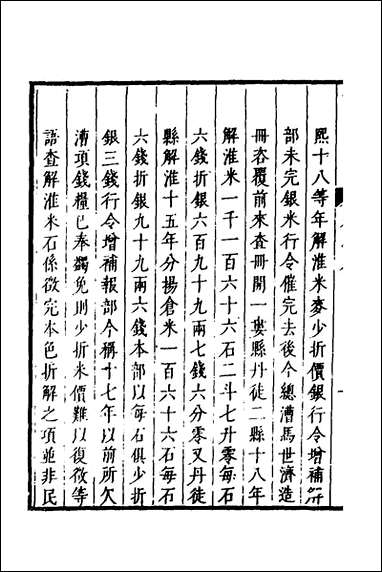 熙十八等年解淮米麥少折價銀行令增補解
部未完銀米行令催完去後今總漕馬世濟造
冊咨覆前來查冊開一婁縣丹徒二縣十八年
解淮米一千一百六十六石二斗七升零每石
六錢折銀六百九十九兩七錢六分零又丹徒
縣解淮十五年分揚倉米一百六十六石每石
六錢折銀九十九兩六錢本部以每石俱少折
銀三錢行令增補報部今稱十七年以前所欠
漕項錢糧已奉蠲免則少折米價難以復徵等
語查解淮米石係徵完本色折解之項並非民